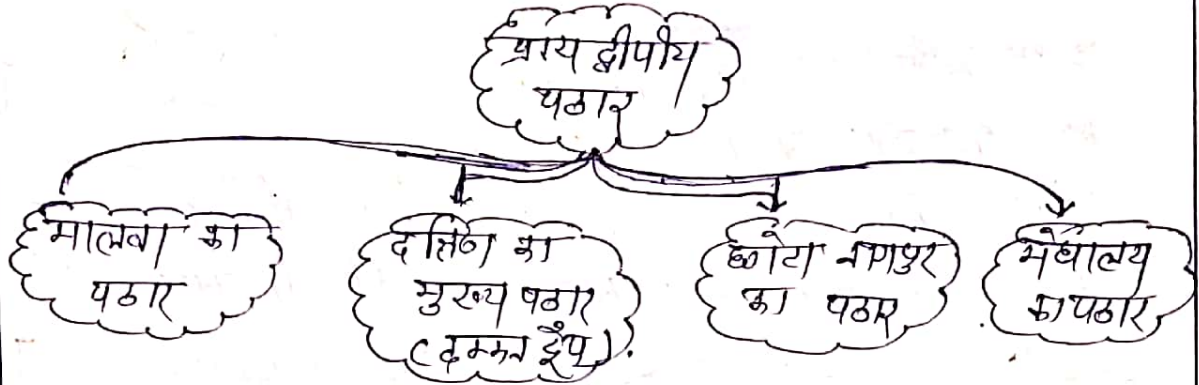 प्राय द्वीपीय
पठार
मालवा का
पठार
दक्षिण का
मुख्य पठार
(दक्कन ट्रैप)
छोटा नागपुर
का पठार
मेघालय
का पठार